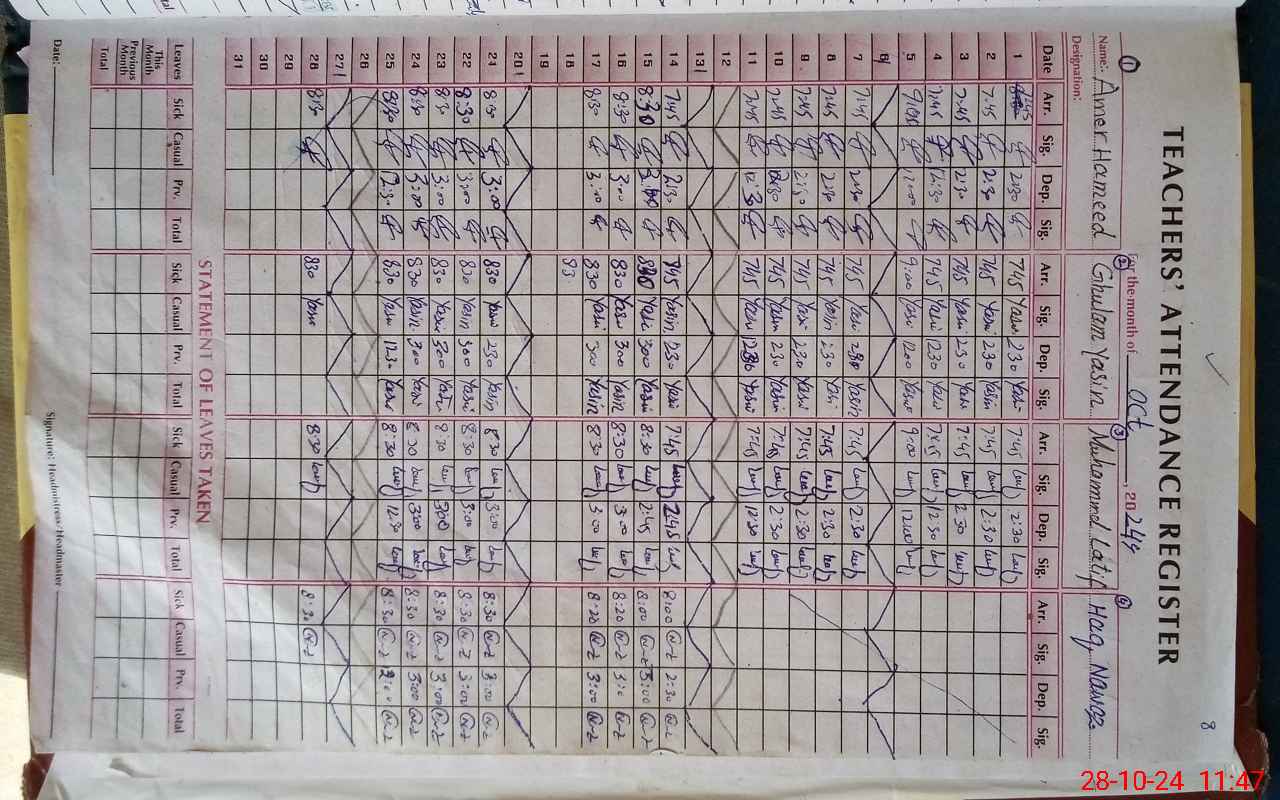 8
TEACHERS' ATTENDANCE REGISTER
For the month of Oct, 2024
Name:- ① Amer Hameed ② Ghulam Yasin ③ Muhammad Latif ④ Haq Nawaz
Designation:
Date Arr. Sig. Dep. Sig. Arr. Sig. Dep. Sig. Arr. Sig. Dep. Sig. Arr. Sig. Dep. Sig.
1 7:45 2:30 745 Yasin 230 Yasin 7:45 2:30
2 7:45 2:30 745 Yasin 230 Yasin 7:45 2:30
3 7:45 2:30 745 Yasin 230 Yasin 7:45 2:30
4 7:45 12:30 745 Yasin 1230 Yasin 7:45 12:30
5 9:00 12:00 9:00 Yasin 1200 Yasin 9:00 12:00
6
7 7:45 2:30 745 Yasin 230 Yasin 7:45 2:30
8 7:45 2:30 745 Yasin 230 Yasin 7:45 2:30
9 7:45 2:30 745 Yasin 230 Yasin 7:45 2:30
10 7:45 745 Yasin 230 Yasin 7:45 2:30
11 7:45 12:30 745 Yasin 1230 Yasin 7:45 12:30
12
13
14 7:45 2:30 745 Yasin 230 Yasin 7:45 2:45 8:00 2:30
15 830 830 Yasin 300 Yasin 8:30 2:45 8:00 3:00
16 8:30 3:00 830 Yasin 300 Yasin 8:30 3:00 8:20
17 8:30 3:00 830 Yasin 300 Yasin 8:30 3:00 8:20 3:00
18 83
19
20
21 8:30 3:00 830 Yasin 230 Yasin 8:30 3:00 8:30 3:00
22 8:30 3:00 830 Yasin 300 Yasin 8:30 3:00 8:30 3:00
23 8:30 3:00 830 Yasin 300 Yasin 8:30 300 8:30 3:00
24 8:30 3:00 830 Yasin 300 Yasin 8:30 300 8:30 3:00
25 8:30 12:30 830 Yasin 1230 Yasin 8:30 12:30 8:30
26
27
28 8:30 830 Yasin 8:30 8:30
29
30
31
STATEMENT OF LEAVES TAKEN
Leaves Sick Casual Prv. Total Sick Casual Prv. Total Sick Casual Prv. Total Sick Casual Prv. Total
This Month
Previous Month
Total
Date: Signature: Headmistress/Headmaster
28-10-24 11:47